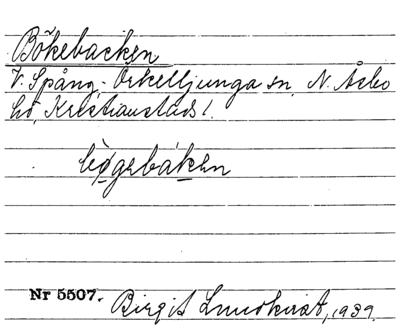 Bökebacken
V. Spång, Örkelljunga sn, N. Åsbo
hd, Kristianstads l.
bøgebaken
Nr 5507. Birgit Lundkvist, 1939.